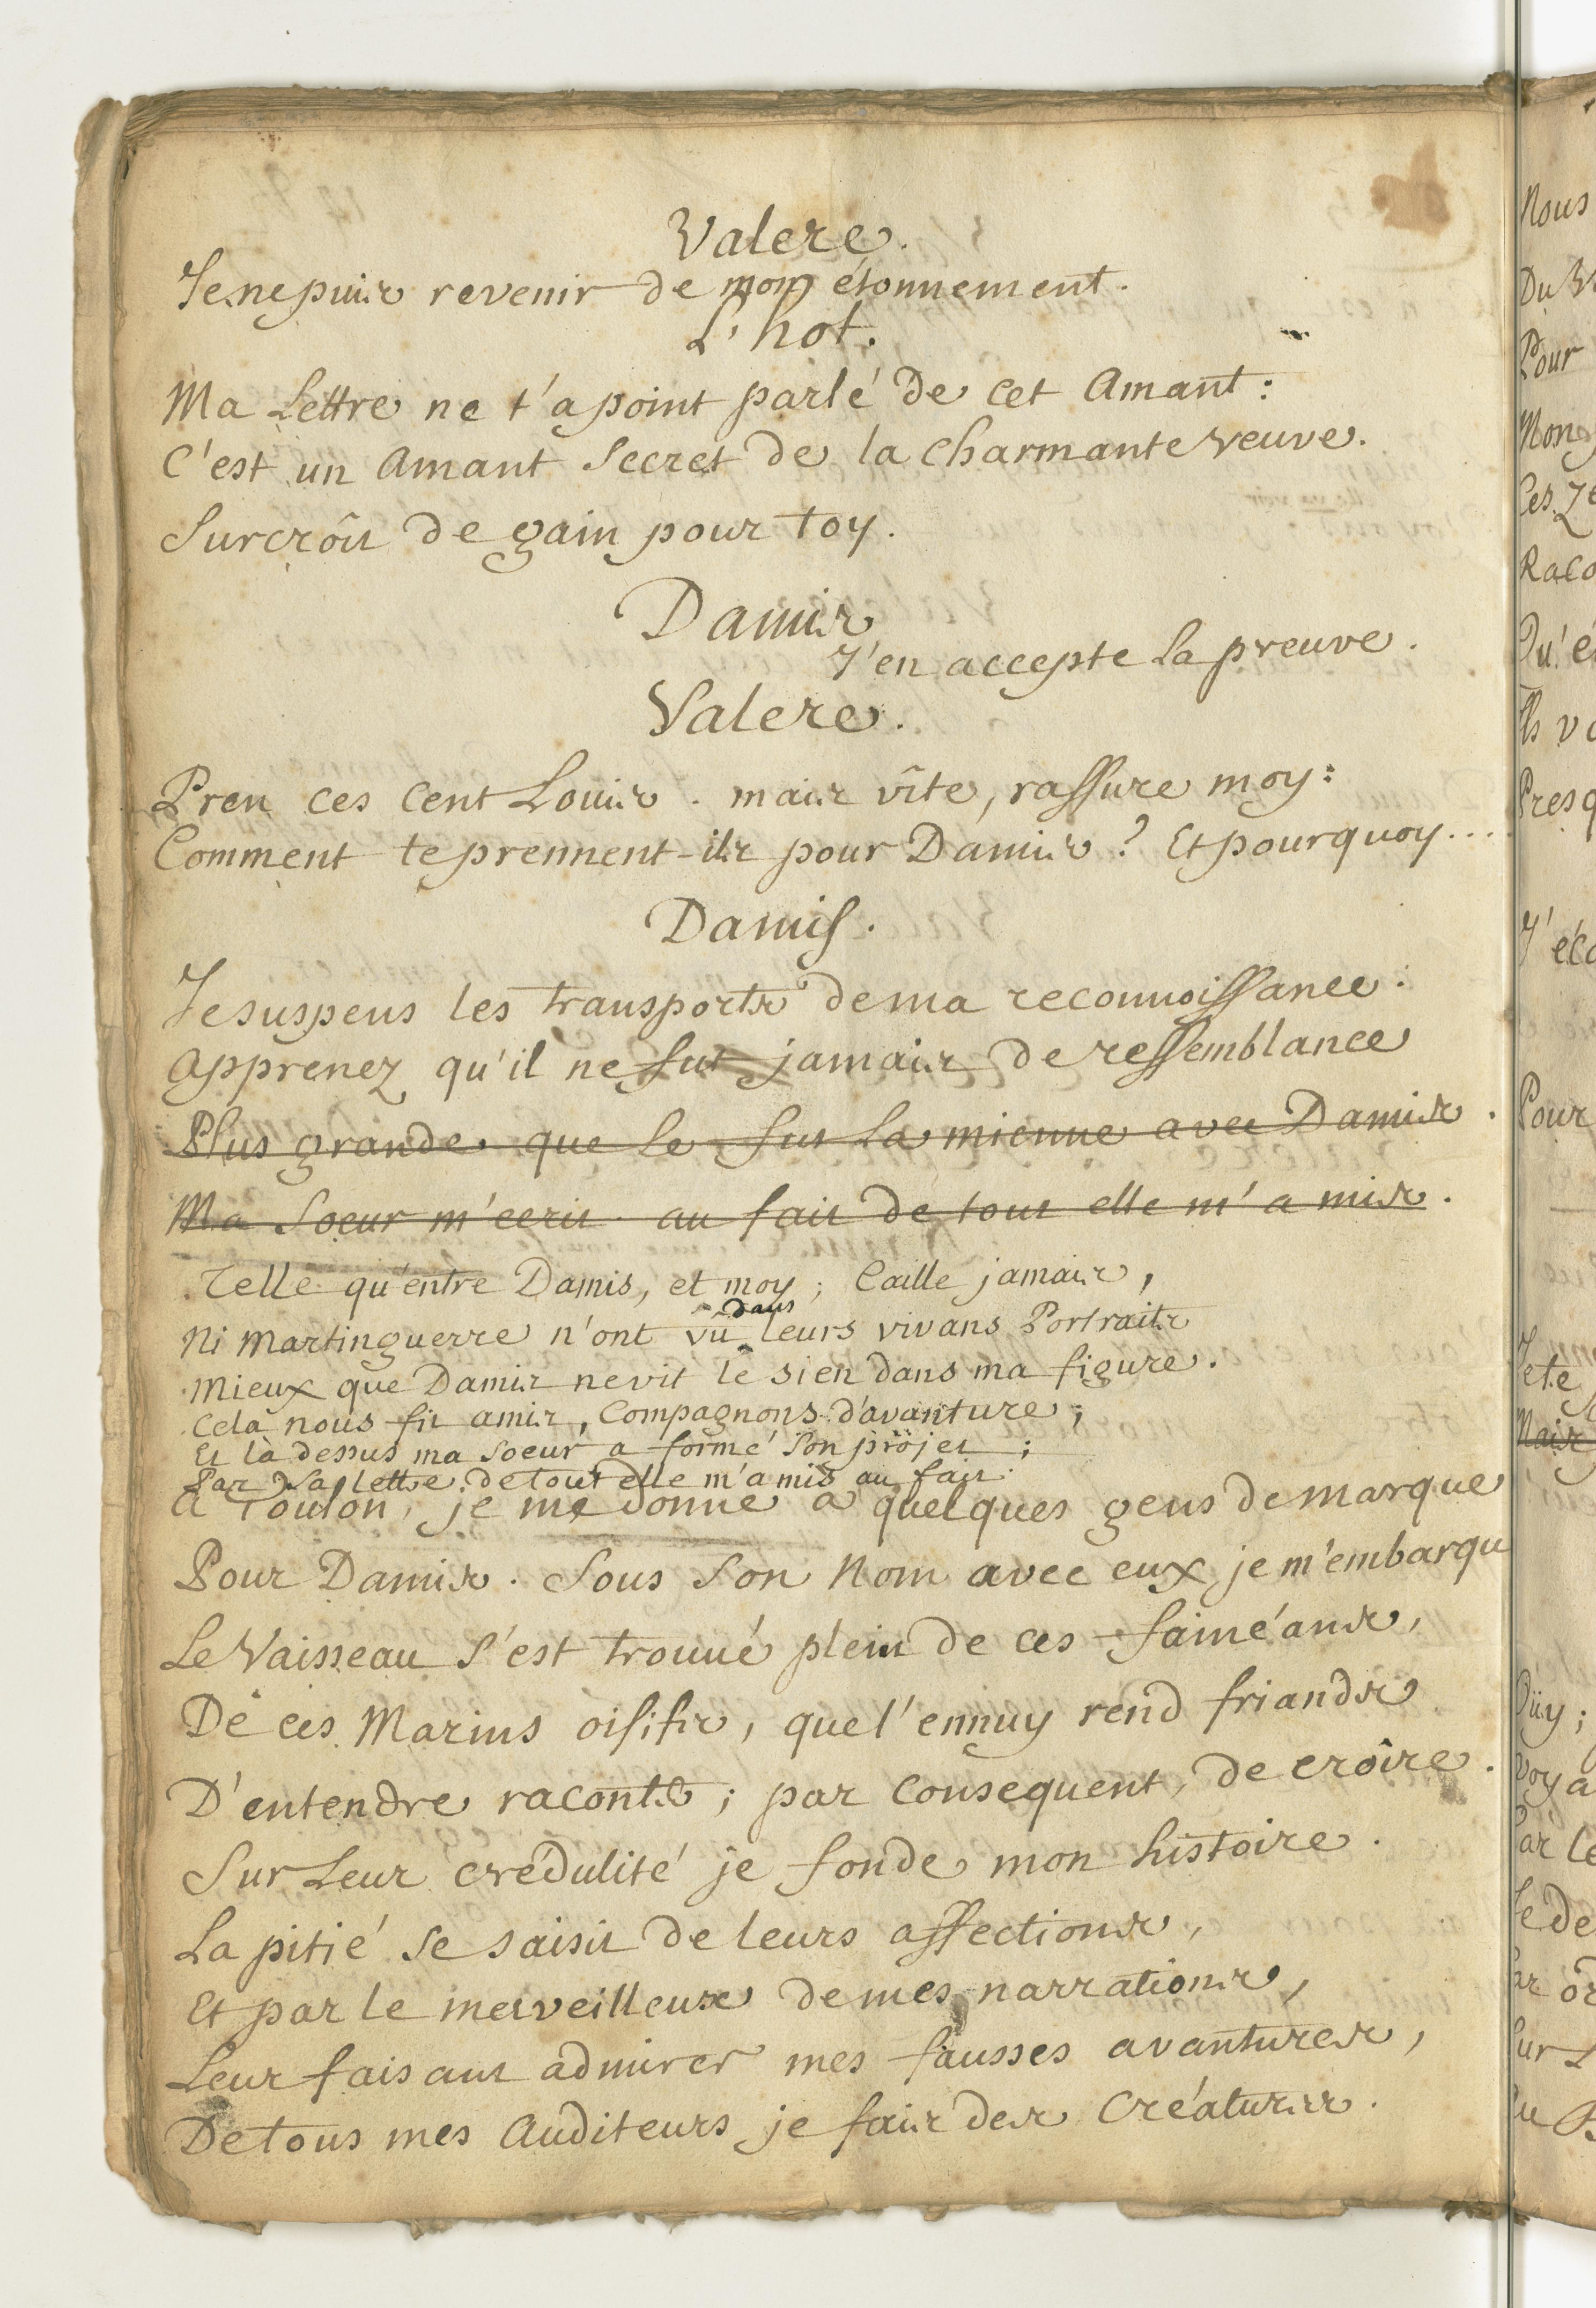 Valere.
Je ne puis revenir de mon étonnement.
L'hot.
Ma Lettre ne t'a point parlé de cet Amant:
C'est un Amant Secret de la Charmante veuve.
Surcroît de gain pour toy.
Damis
J'en accepte la preuve.
Valere.
Pren ces cent Louis. mais vîte, rassure moy:
Comment te prennent-ils pour Damis? Et pourquoy....
Damis.
Je suspens les transports de ma reconnoissance:
Apprenez qu'il ne fut jamais de ressemblance
Plus grande. que le fut la mienne avec Damis.
Ma Soeur m'ecrit. au fait de tout elle m'a mis.
Telle qu'entre Damis, et moy; Caille jamais,
Ni Martinguerre n'ont vû dans leurs vivans Portraits
Mieux que Damis ne vit le sien dans ma figure.
Cela nous fit amis, Compagnons d'avanture;
Et là dessus ma Soeur a formé Son projet;
Par Sa lettre, de tout elle m'a mis au fait.
A Toulon, je me donne a quelques gens de marque
Pour Damis. Sous Son Nom avec eux je m'embarqu
Le Vaisseau s'est trouué plein de ces fainéans,
De ces Marins oisifs, que l'ennuy rend friands
D'entendre raconter; par Consequent, de croire.
Sur Leur crédulité je fonde mon histoire.
La pitié se saisit de leurs affections,
Et par le merveilleux de mes narrations,
Leur faisant admirer mes fausses avantures,
De tous mes Auditeurs je fais des Créatures.
Nous
Pour
Mon
Ces
Raco
Qu'é
Presq
J'éco
Pour
Je te
Mais
Oüy;
Voya
Par le